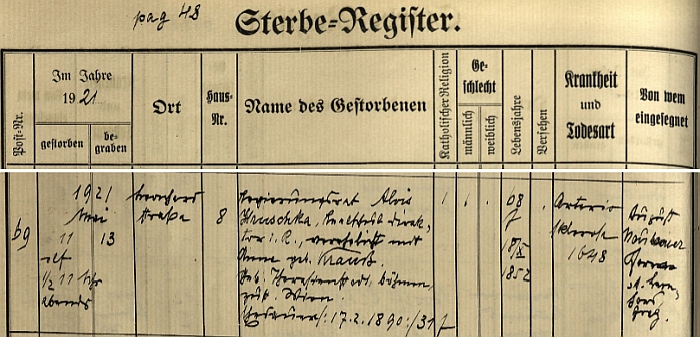 pag 48
Sterbe-Register.
Post-Nr.
Im Jahre
1921
gestorben
be-
graben
Ort
Haus-
Nr.
Name des Gestorbenen
Katholischer Religion
Ge-
schlecht
männlich
weiblich
Lebensjahre
Versehen
Krankheit
und
Todesart
Von wem
eingesegnet
69
1921
Mai
11
13
1/2 11 Uhr
abends
straße
8
Regierungsrat Alois
Hruschka, direk-
tor i. R., verehelicht mit
Anna geb. Krauß.
Geb. Theresienstadt, Böhmen,
zust. Wien.
17.2.1890
1
1
68
J
18/X
1852
Arterio
sklerose
1648
August